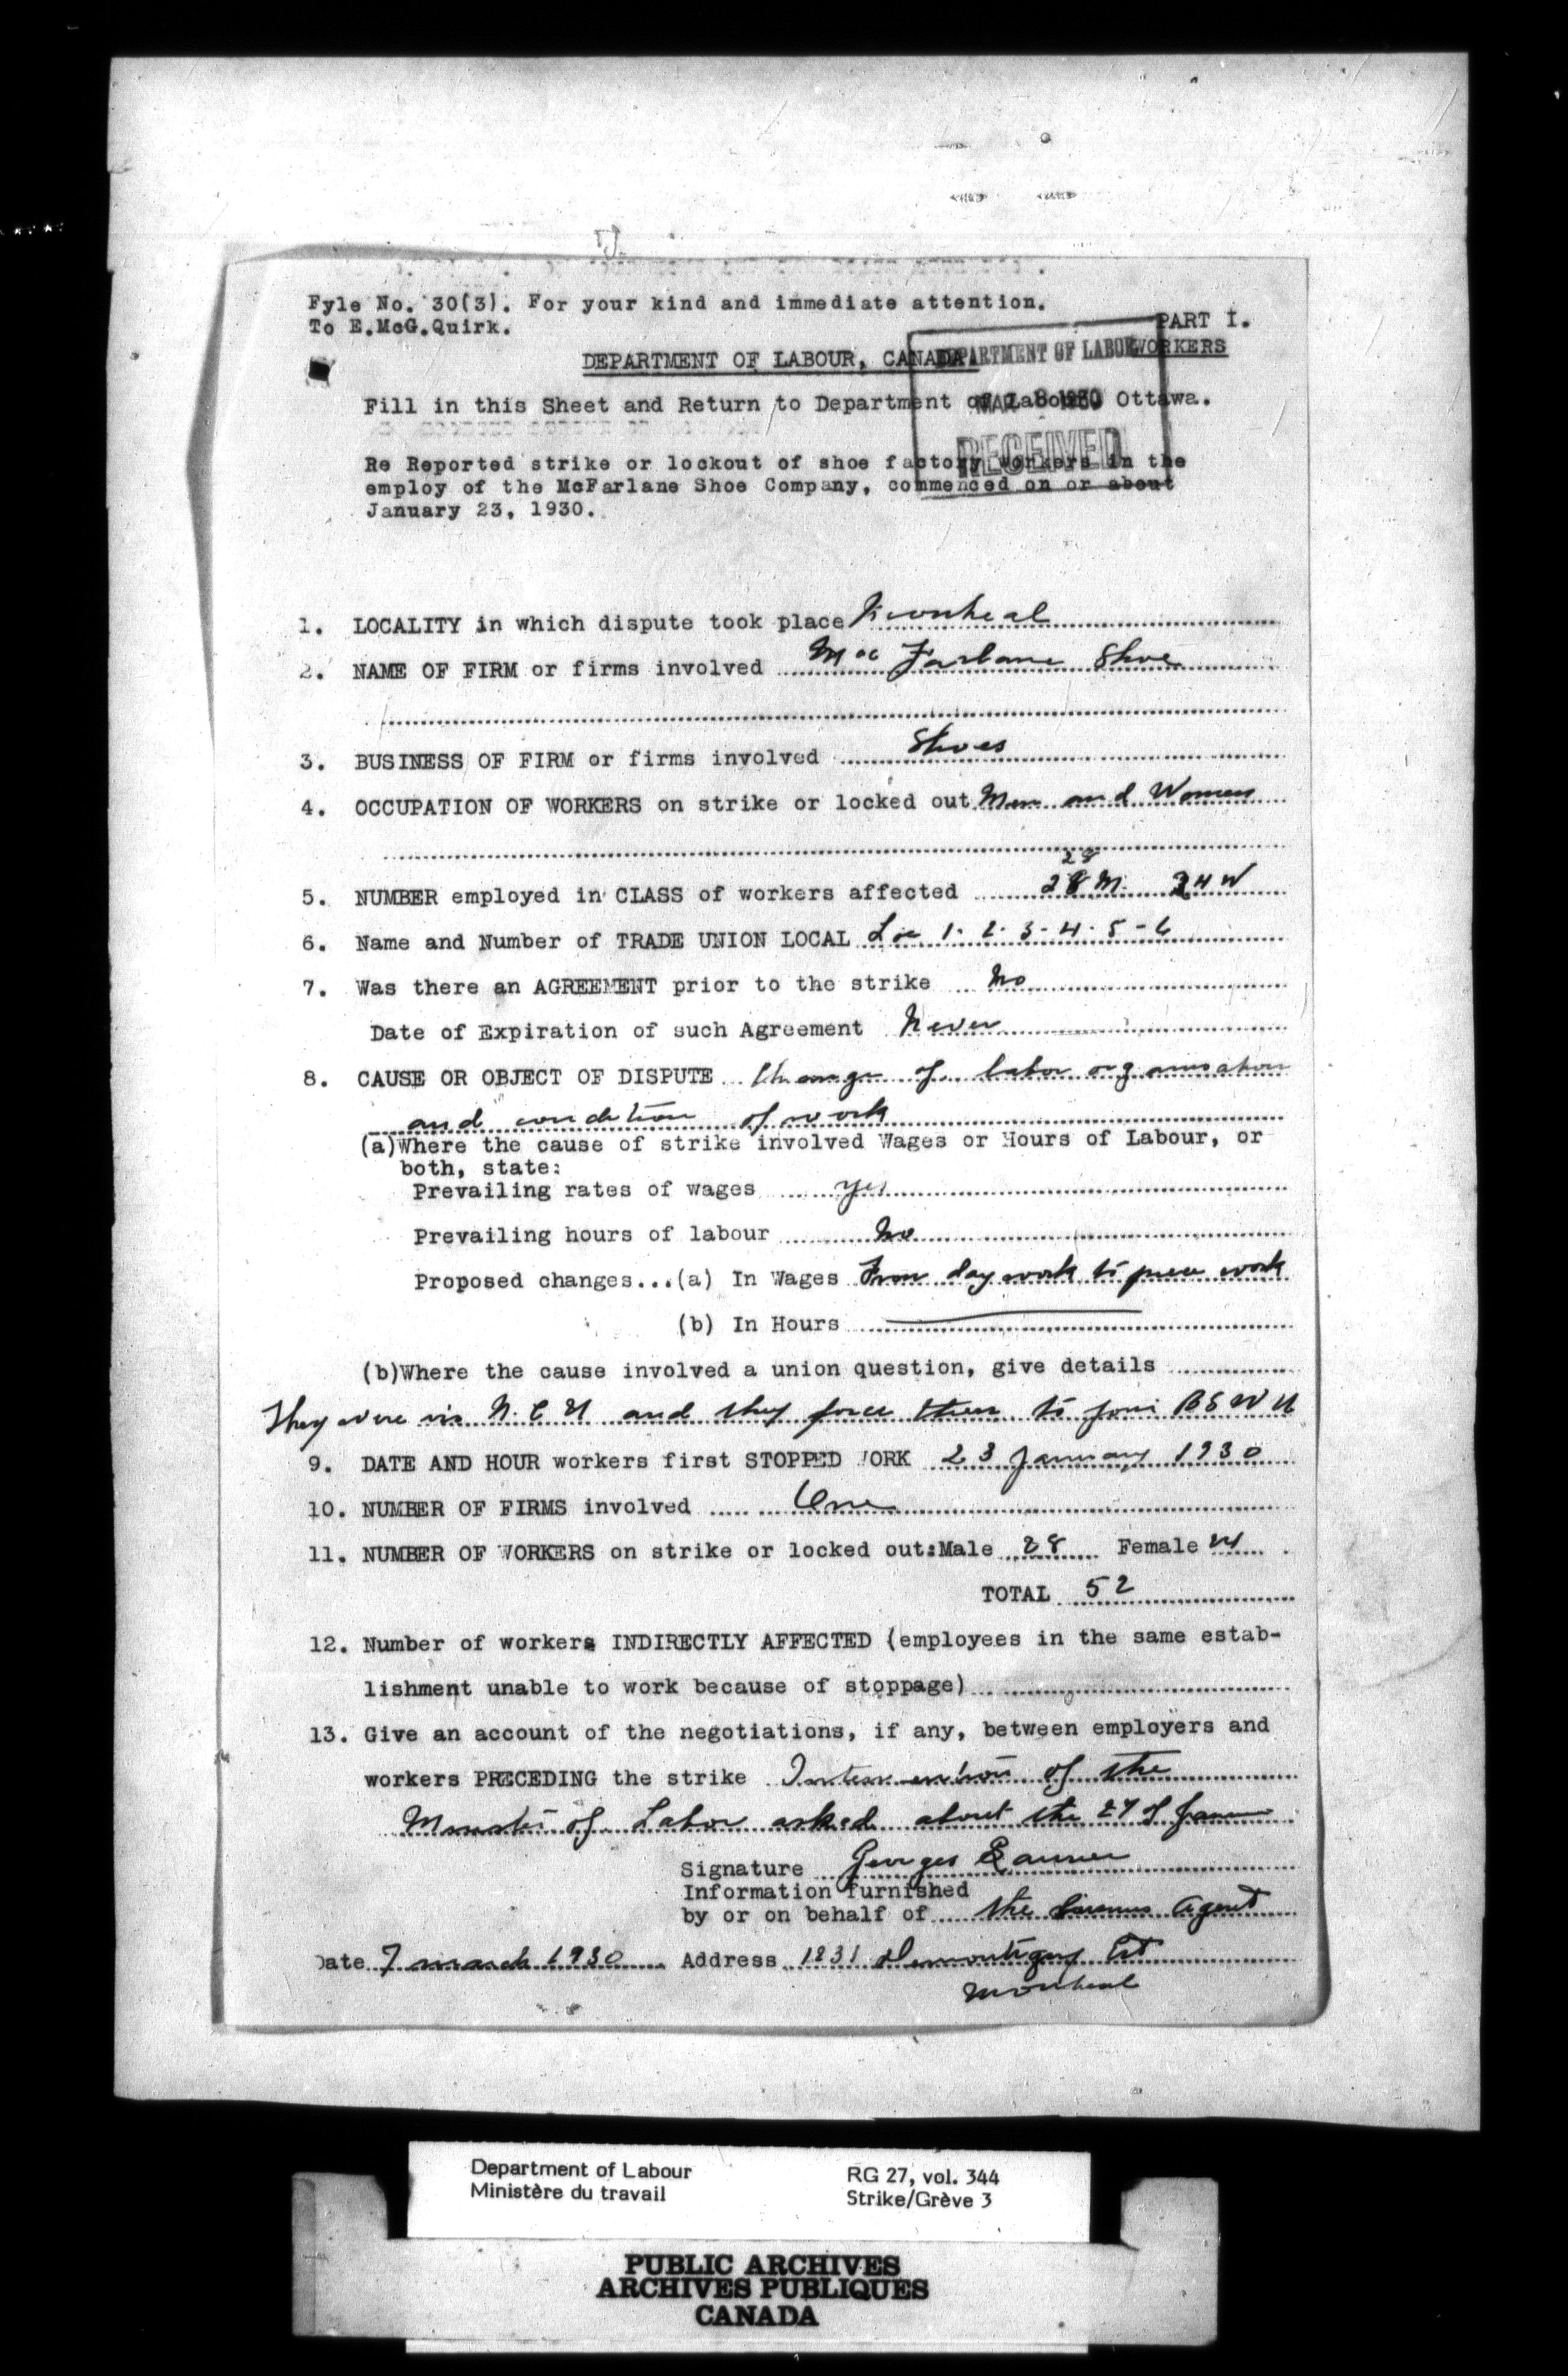 Fyle No. 30(3). For your kind and immediate attention.
To E.McG.Quirk.
PART I.
DEPARTMENT OF LABOUR, CANADA
WORKERS
DEPARTMENT OF LABOUR
MAR 8 1930
RECEIVED
Fill in this Sheet and Return to Department of Labour, Ottawa.
Re Reported strike or lockout of shoe factory workers in the
employ of the McFarlane Shoe Company, commenced on or about
January 23, 1930.
1. LOCALITY in which dispute took place Montreal
2. NAME OF FIRM or firms involved Mac Farlane Shoe
3. BUSINESS OF FIRM or firms involved Shoes
4. OCCUPATION OF WORKERS on strike or locked out Men and Women
28
5. NUMBER employed in CLASS of workers affected 28 M. 24 W
6. Name and Number of TRADE UNION LOCAL Loc 1-2-3-4-5-6
7. Was there an AGREEMENT prior to the strike No
Date of Expiration of such Agreement Never
8. CAUSE OR OBJECT OF DISPUTE Change of labor organisation
and condition of work
(a)Where the cause of strike involved Wages or Hours of Labour, or
both, state:
Prevailing rates of wages yes
Prevailing hours of labour No
Proposed changes...(a) In Wages From day work to piece work
(b) In Hours
(b)Where the cause involved a union question, give details
They were in N.C.U and they force them to join B S W U
9. DATE AND HOUR workers first STOPPED WORK 23 January 1930
10. NUMBER OF FIRMS involved One
11. NUMBER OF WORKERS on strike or locked out:Male 28 Female 24
TOTAL 52
12. Number of workers INDIRECTLY AFFECTED (employees in the same estab-
lishment unable to work because of stoppage)
13. Give an account of the negotiations, if any, between employers and
workers PRECEDING the strike Intervention of the
Minister of Labor asked about the 27 of
Signature Georges
Information furnished
by or on behalf of the Business Agent
Date 7 march 1930 Address 1231 Demontigny Est
Montreal
Department of Labour
Ministère du travail
RG 27, vol. 344
Strike/Grève 3
PUBLIC ARCHIVES
ARCHIVES PUBLIQUES
CANADA